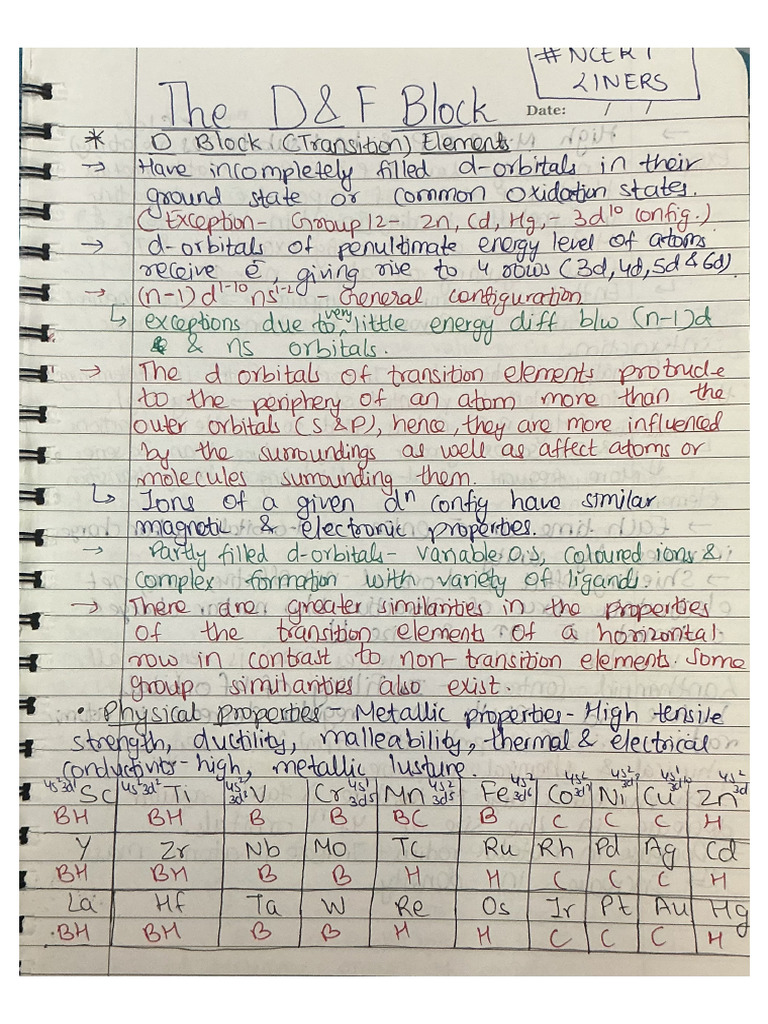 # NCERT
LINERS
The D & F Block
Date: / /
* D Block (Transition) Elements
→ Have incompletely filled d-orbitals in their
ground state or common oxidation states.
(Exception- Group 12- Zn, Cd, Hg,- 3d¹⁰ config.)
→ d-orbitals of penultimate energy level of atoms
receive é, giving rise to 4 rows (3d, 4d, 5d & 6d).
→ (n-1)d¹⁻¹⁰ ns¹⁻² - General configuration
↳ exceptions due to very little energy diff b/w (n-1)d
& ns orbitals.
→ The d orbitals of transition elements protrude
to the periphery of an atom more than the
outer orbitals (s & p), hence, they are more influenced
by the surroundings as well as affect atoms or
molecules surrounding them.
↳ Ions of a given dⁿ config have similar
magnetic & electronic properties.
→ Partly filled d-orbitals- variable O.S, coloured ions &
complex formation with variety of ligands.
→ There are greater similarities in the properties
of the transition elements of a horizontal
row in contrast to non-transition elements. Some
group similarities also exist.
• Physical properties - Metallic properties - High tensile
strength, ductility, malleability, thermal & electrical
conductivity-high, metallic lusture.
4s²3d¹ Sc 4s²3d² Ti 4s² 3d³ V Cr 4s¹ 3d⁵ Mn 4s² 3d⁵ Fe 4s² 3d⁶ Co 4s² 3d⁷ Ni 4s² 3d⁸ Cu 4s¹ 3d¹⁰ Zn 4s² 3d¹⁰
BH BH B B BC B C C C H
Y Zr Nb Mo TC Ru Rh Pd Ag Cd
BH BH B B H H C C C H
La Hf Ta W Re Os Ir Pt Au Hg
BH BH B B H H C C C H